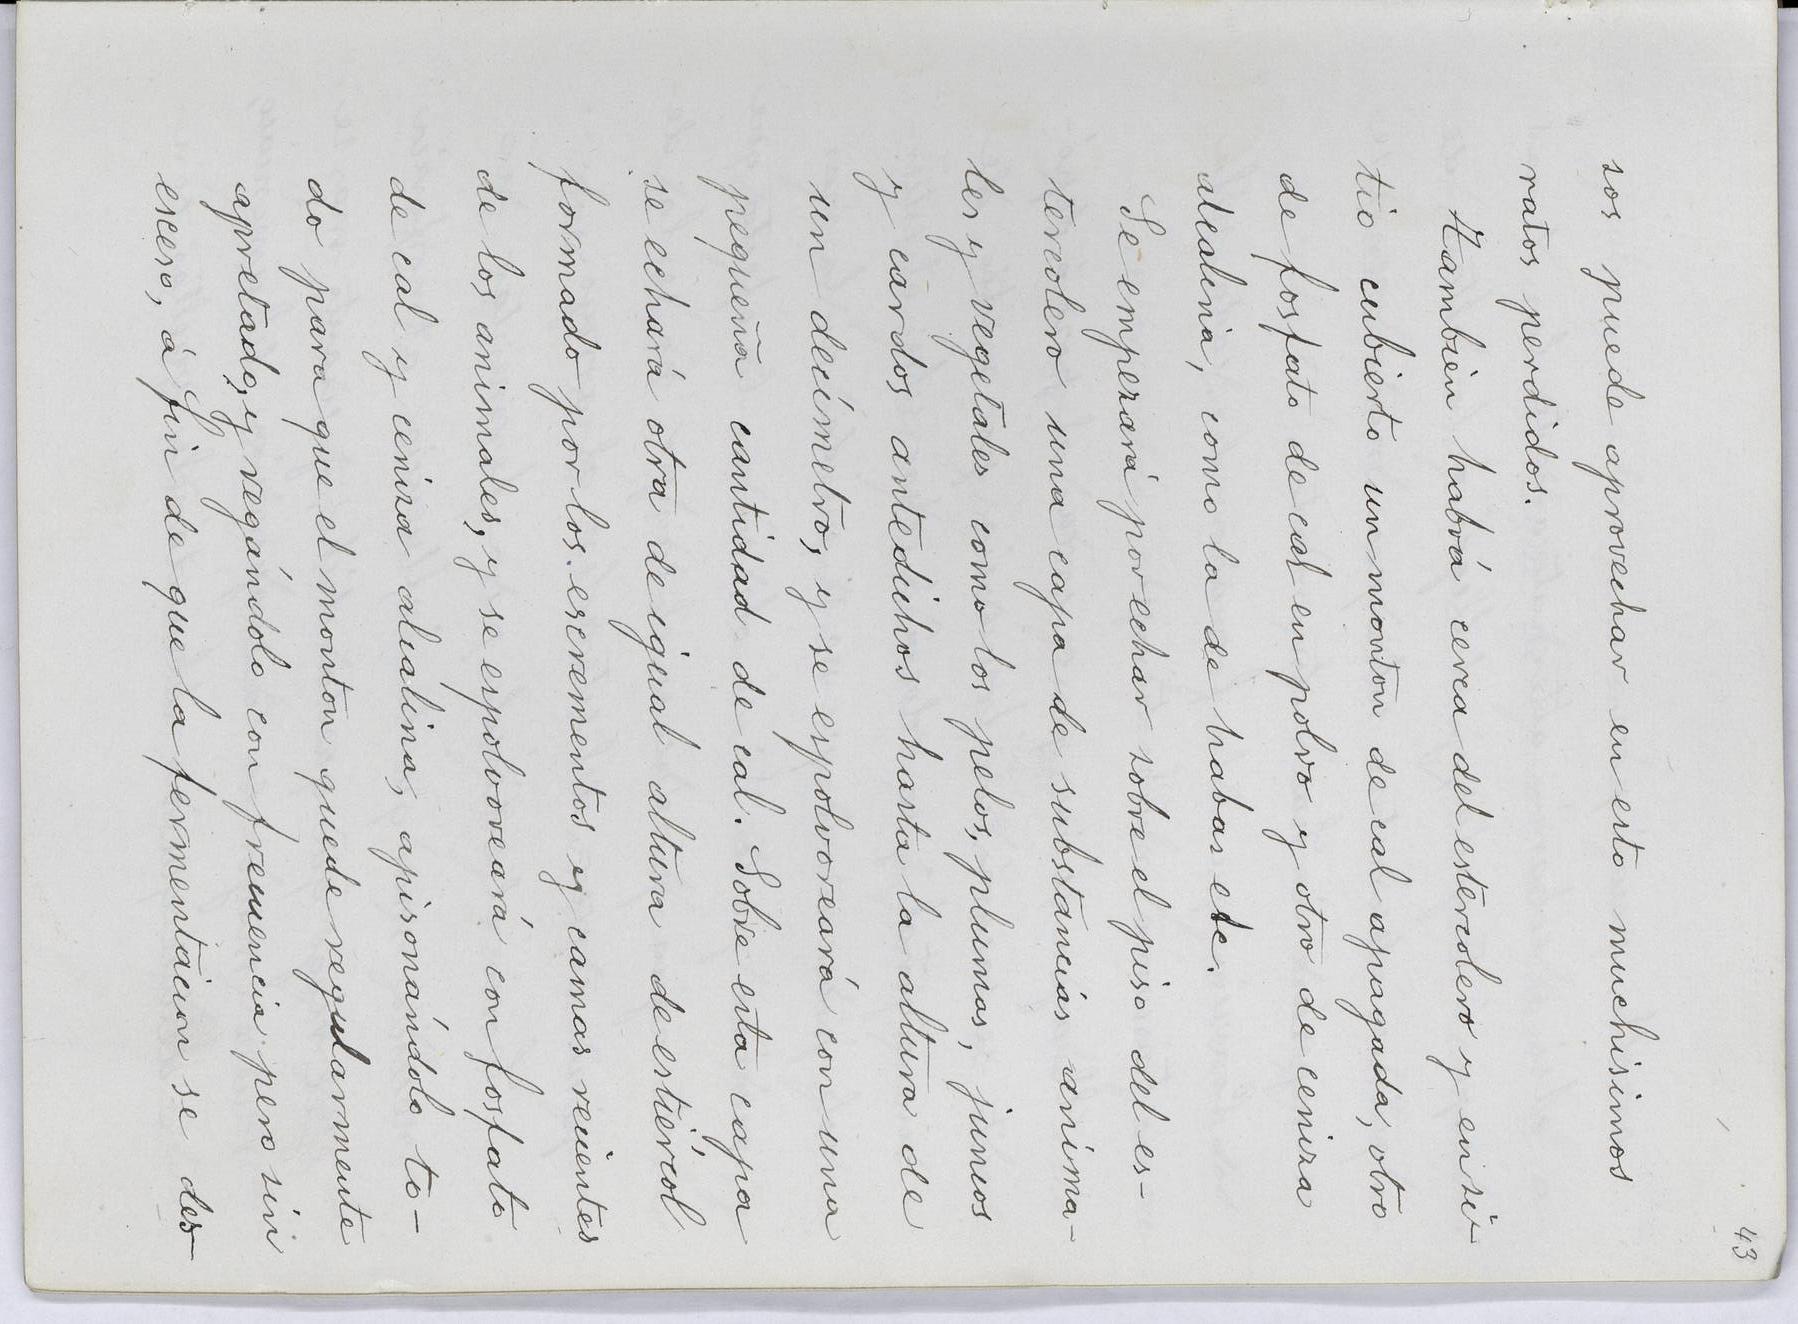 43
sos puede aprovechar en esto muchisimos
ratos perdidos.
Tambien habrá cerca del estercolero y en si-
tio cubierto un monton de cal apagada, otro
de fosfato de cal en polvo y otro de ceniza
alcalina, como la de habas etc.
Se empezará por echar sobre el piso del es-
tercolero una capa de substancias anima-
les y vegetales como los pelos, plumas, juncos
y cardos antedichos hasta la altura de
un decímetro, y se espolvoreará con una
pequeña cantidad de cal. Sobre esta capa
se echará otra de igual altura de estiércol
formado por los escrementos y camas recientes
de los animales, y se espolvoreará con fosfato
de cal y ceniza alcalina, apisonándolo to-
do para que el monton quede regularmente
apretado, y regándolo con frecuencia pero sin
esceso, á fin de que la fermentacion se des-